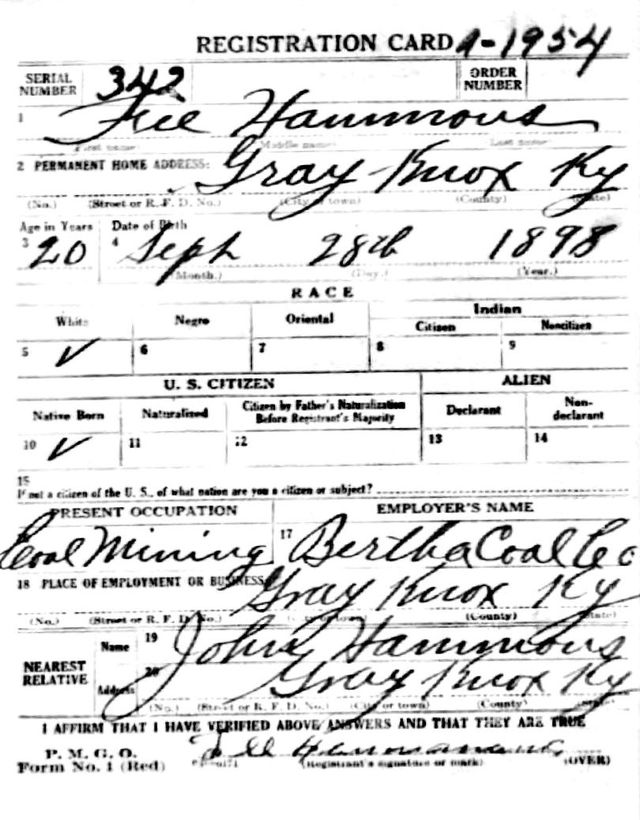 REGISTRATION CARD A-1954
SERIAL NUMBER 342 ORDER NUMBER
1 Free Hammous
First name Middle name Last name
2 PERMANENT HOME ADDRESS: Gray Knox Ky
(No.) (Street or R. F. D. No.) (City or town) (County) (State)
Age in Years Date of Birth
3 20 4 Sept 28th 1898
(Month.) (Day.) (Year.)
RACE
White Negro Oriental Indian
Citizen Noncitizen
5 ✓ 6 7 8 9
U. S. CITIZEN ALIEN
Native Born Naturalized Citizen by Father's Naturalization Before Registrant's Majority Declarant Non-declarant
10 ✓ 11 12 13 14
15
If not a citizen of the U. S., of what nation are you a citizen or subject?
PRESENT OCCUPATION EMPLOYER'S NAME
Coal Mining 17 Bertha Coal Co
18 PLACE OF EMPLOYMENT OR BUSINESS Gray Knox Ky
(No.) (Street or R. F. D. No.) (City or town) (County) (State)
NEAREST RELATIVE Name 19 John Hammous
Address 20 Gray Knox Ky
(No.) (Street or R. F. D. No.) (City or town) (County) (State)
I AFFIRM THAT I HAVE VERIFIED ABOVE ANSWERS AND THAT THEY ARE TRUE
P. M. G. O.
Form No. 1 (Red) (Registrant's signature or mark) (OVER)